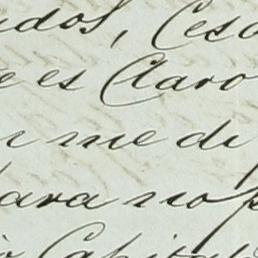 udos, Ceso
e es Claro
n me di
para no p
io Capital